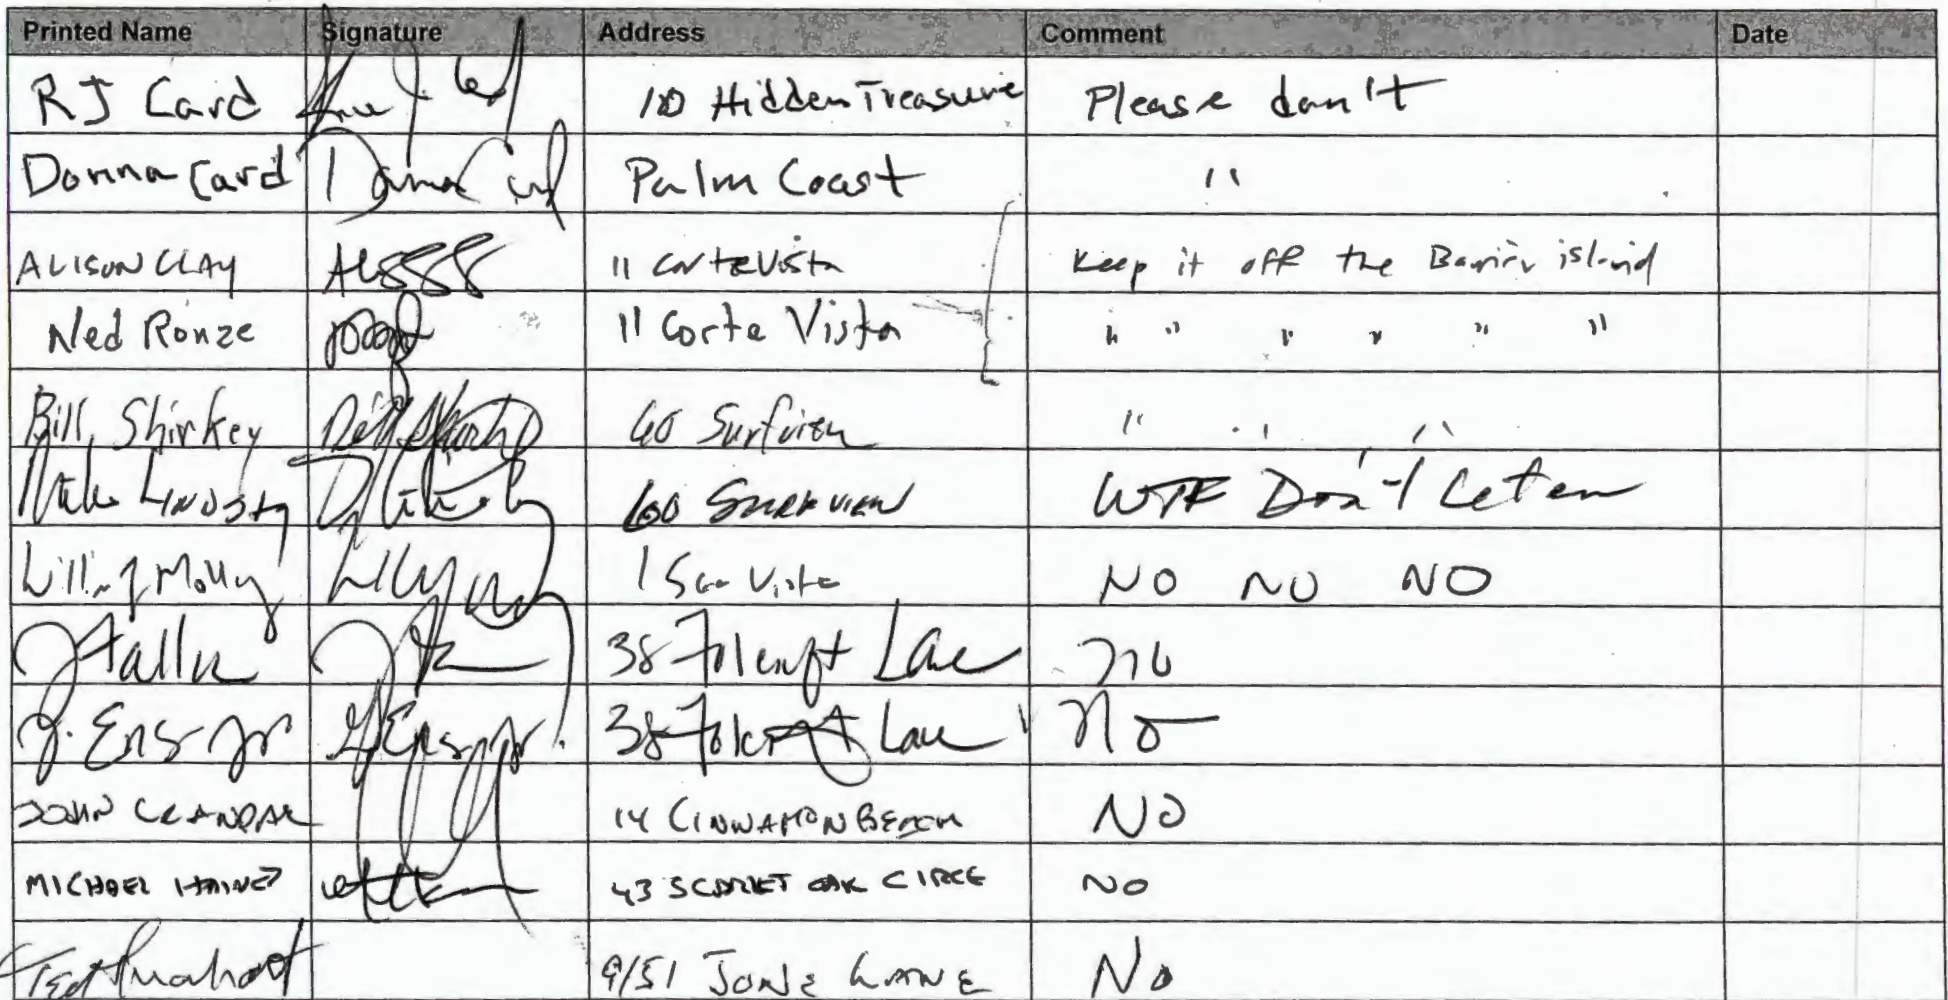 Printed Name Signature Address Comment Date
RJ Card 10 Hidden Treasure Please don't
Donna Card Donna Card Palm Coast "
ALISON CLAY 11 Corte Vista Keep it off the Barrier island
Ned Ronze 11 Corte Vista " " " " " "
Bill Shirkey Bill 60 Surfview " " "
60 SURFVIEW WTF Don't Let em
Molly 1 Sea Vista NO NO NO
38 Lane no
J. Ens Jr J Ens Jr. 38 Lane No
JOHN CRANDAL 14 CINNAMON BEACH NO
MICHAEL HAINES 43 SCARLET OAK CIRCLE NO
Ted LANE No